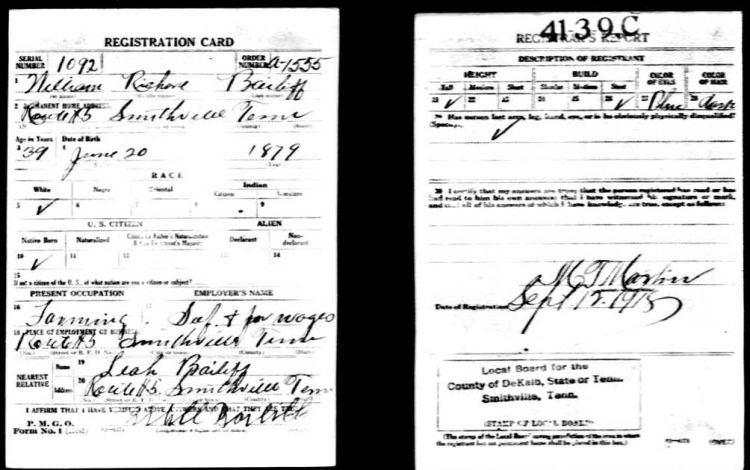 REGISTRATION CARD
SERIAL NUMBER 1092 ORDER NUMBER A-1555
1 William Richard Bailiff
2 PERMANENT HOME ADDRESS:
Route #3 Smithville Tenn
Age in Years Date of Birth
3 39 4 June 20 1879
RACE
White Negro Oriental Indian
Citizen
5 ✓ 6 7 8 9
U. S. CITIZEN ALIEN
Native Born Naturalized Declarant Non-declarant
10 ✓ 11 12 13 14
15
If not a citizen of the U. S., of what nation are you a citizen or subject?
PRESENT OCCUPATION EMPLOYER'S NAME
16 Farming Self + for wages
18 PLACE OF EMPLOYMENT OR BUSINESS:
Route #3 Smithville Tenn
NEAREST RELATIVE
Name 19 Leah Bailiff
Address 20 Route #3, Smithville Tenn
I AFFIRM THAT I HAVE VERIFIED ABOVE ANSWERS AND THAT THEY ARE TRUE
P. M. G. O.
Form No. 1 (Red)
4139.C
REGISTRAR'S REPORT
DESCRIPTION OF REGISTRANT
HEIGHT BUILD COLOR OF EYES COLOR OF HAIR
Tall Medium Short Slender Medium Stout
21 ✓ 22 23 24 25 26 ✓ 27 Blue 28 Dark
29 Has person lost arm, leg, hand, eye, or is he obviously physically disqualified?
(Specify.)
✓
30 I certify that my answers are true; that the person registered has read or has
had read to him his own answers; that I have witnessed his signature or mark,
and that all of his answers of which I have knowledge are true, except as follows:
M T Martin
Date of Registration Sept 12 1918
Local Board for the
County of DeKalb, State of Tenn.
Smithville, Tenn.
(STAMP OF LOCAL BOARD)
(The stamp of the Local Board having jurisdiction of the area in which
the registrant has his permanent home shall be placed in this box.)
(OVER)